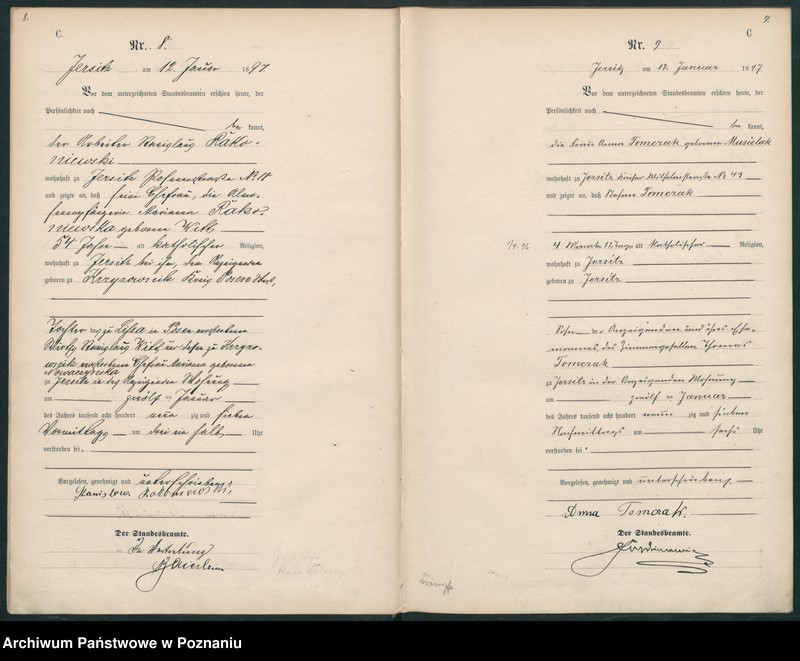 8.
C.
Nr. 8.
Jersitz am 12. Januar 1897.
Vor dem unterzeichneten Standesbeamten erschien heute, der
Persönlichkeit nach
be kannt,
der Arbeiter Stanislaus Rako-
niewski
wohnhaft zu Jersitz Posenerstraße No 18
und zeigte an, daß seine Ehefrau, die
Marianna Rako-
niewska geborene Witt
54 Jahre alt katholischer Religion,
wohnhaft zu Jersitz bei ihm, dem Anzeigenden
geboren zu Krzyzownik Kreis Posen
Tochter des zu Lissa in Posen verstorbenen
Stanislaus Witt und dessen zu
verstorbenen Ehefrau Marianna geborenen
zu Jersitz in des Anzeigenden Wohnung
am zwölf ten Januar
des Jahres tausend acht hundert neun zig und sieben
Vormittags um drei ein halb Uhr
verstorben sei.
Vorgelesen, genehmigt und unterschrieben
Der Standesbeamte.
In Vertretung
9.
C
Nr. 9
Jersitz am 13. Januar 1897
Vor dem unterzeichneten Standesbeamten erschien heute, der
Persönlichkeit nach
be kannt,
die Frau Anna Tomczak geborene Musielak
wohnhaft zu Jersitz Kaiser Wilhelmstraße No 43
und zeigte an, daß Stefan Tomczak
4 Monate 12 Tage alt katholischer Religion,
wohnhaft zu Jersitz
geboren zu Jersitz
Sohn der Anzeigenden und ihres Ehe-
mannes, des Zimmergesellen Thomas
Tomczak
zu Jersitz in der Anzeigenden Wohnung
am zwölf ten Januar
des Jahres tausend acht hundert neun zig und sieben
Nachmittags um sechs Uhr
verstorben sei.
Vorgelesen, genehmigt und unterschrieben
Anna Tomczak.
Der Standesbeamte.
Archiwum Państwowe w Poznaniu